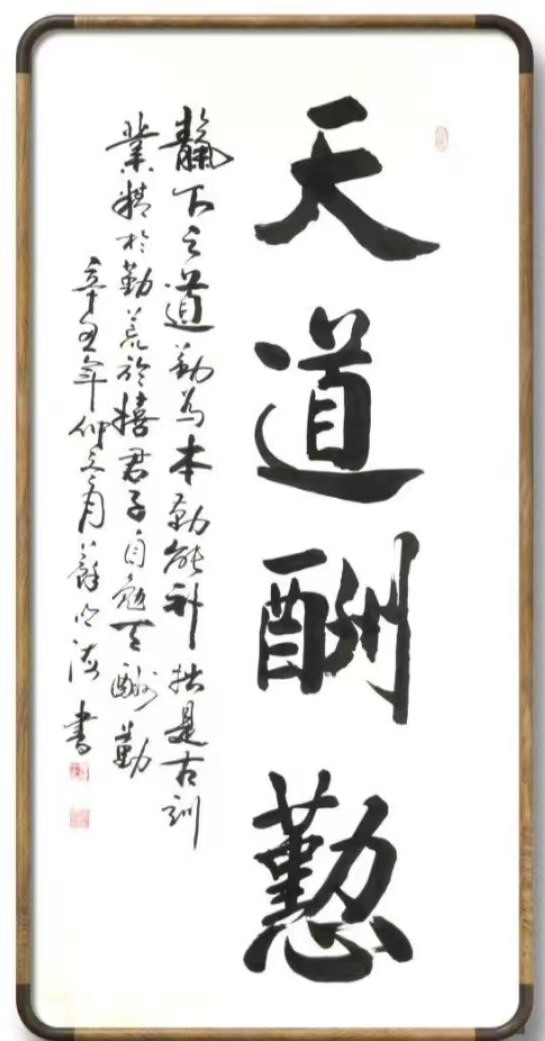 天道酬懃
靝下之道勤為本勤能補拙是古訓
業精於勤荒於嬉君子自勉天酬勤
辛丑年仲月書